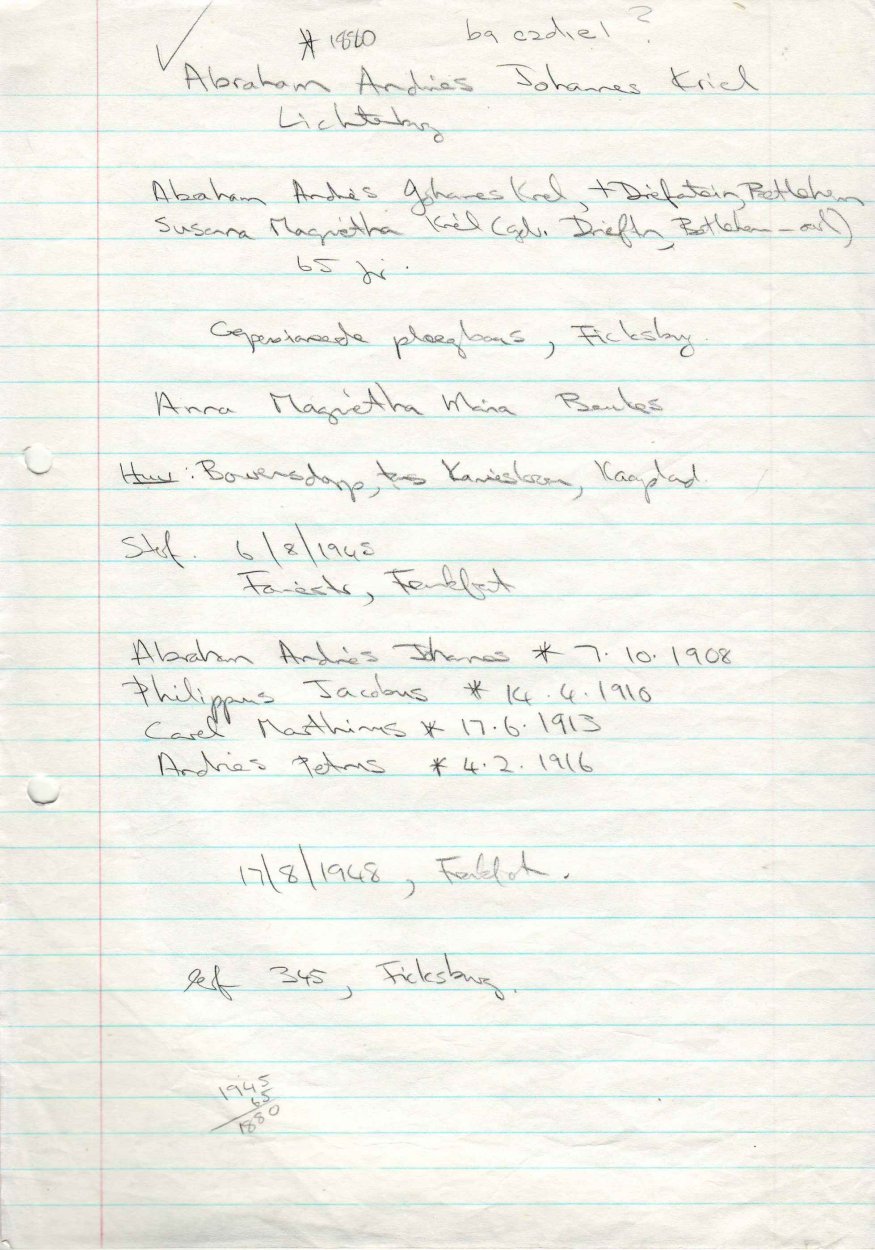 * 1880 b9 c2d1e1 ?
Abraham Andries Johannes Kriel
Lichtenburg
Abraham Andries Johannes Kriel, + Driefontein, Bethlehem
Susanna Magrietha Kriel (geb. Driefn, Bethlehem - oorl)
65 jr.
Gepensioneerde ploegbaas, Ficksburg.
Anna Magrietha Maria Beukes
Huw: Bowersdorp, Kamiesberg, Kaapland
Sterf. 6/8/1945
Frankfort
Abraham Andries Johannes * 7.10.1908
Philippus Jacobus * 14.4.1910
Carel Matthinus * 17.6.1913
Andries Petrus * 4.2.1916
17/8/1948, Frankfort.
erf 345, Ficksburg.
1945
65
1880